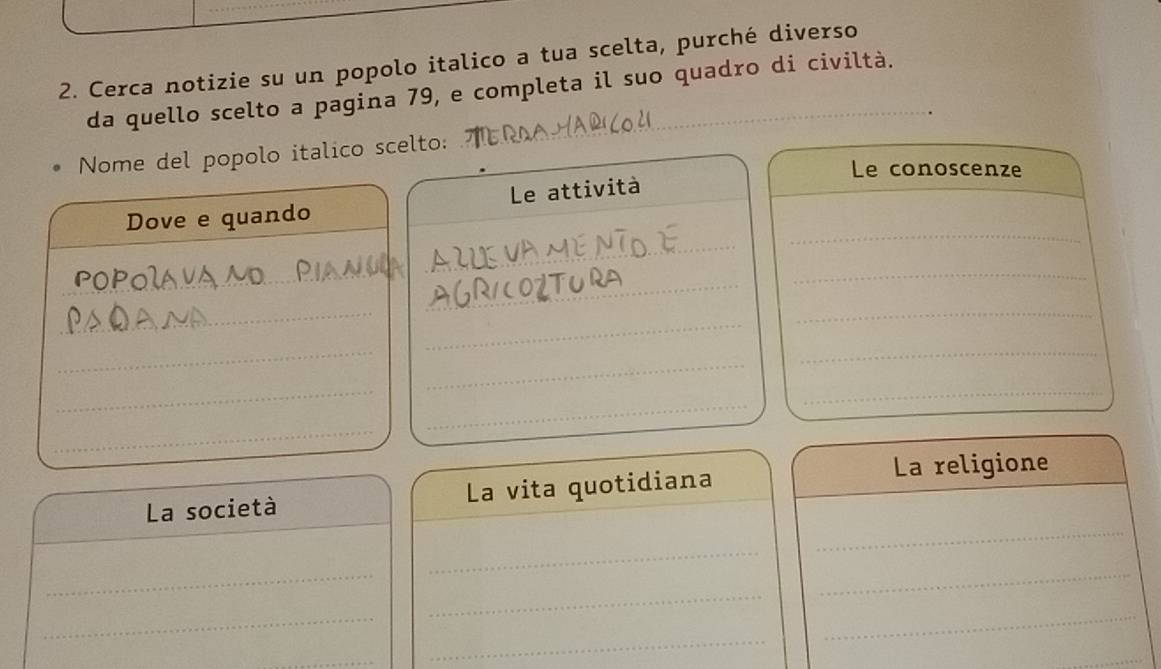 2. Cerca notizie su un popolo italico a tua scelta, purché diverso
da quello scelto a pagina 79, e completa il suo quadro di civiltà.
• Nome del popolo italico scelto: TERRAMARICOLI
Dove e quando
POPOLAVANO PIANURA
PADANA
Le attività
ALLEVAMENTO E
AGRICOLTURA
Le conoscenze
La società
La vita quotidiana
La religione